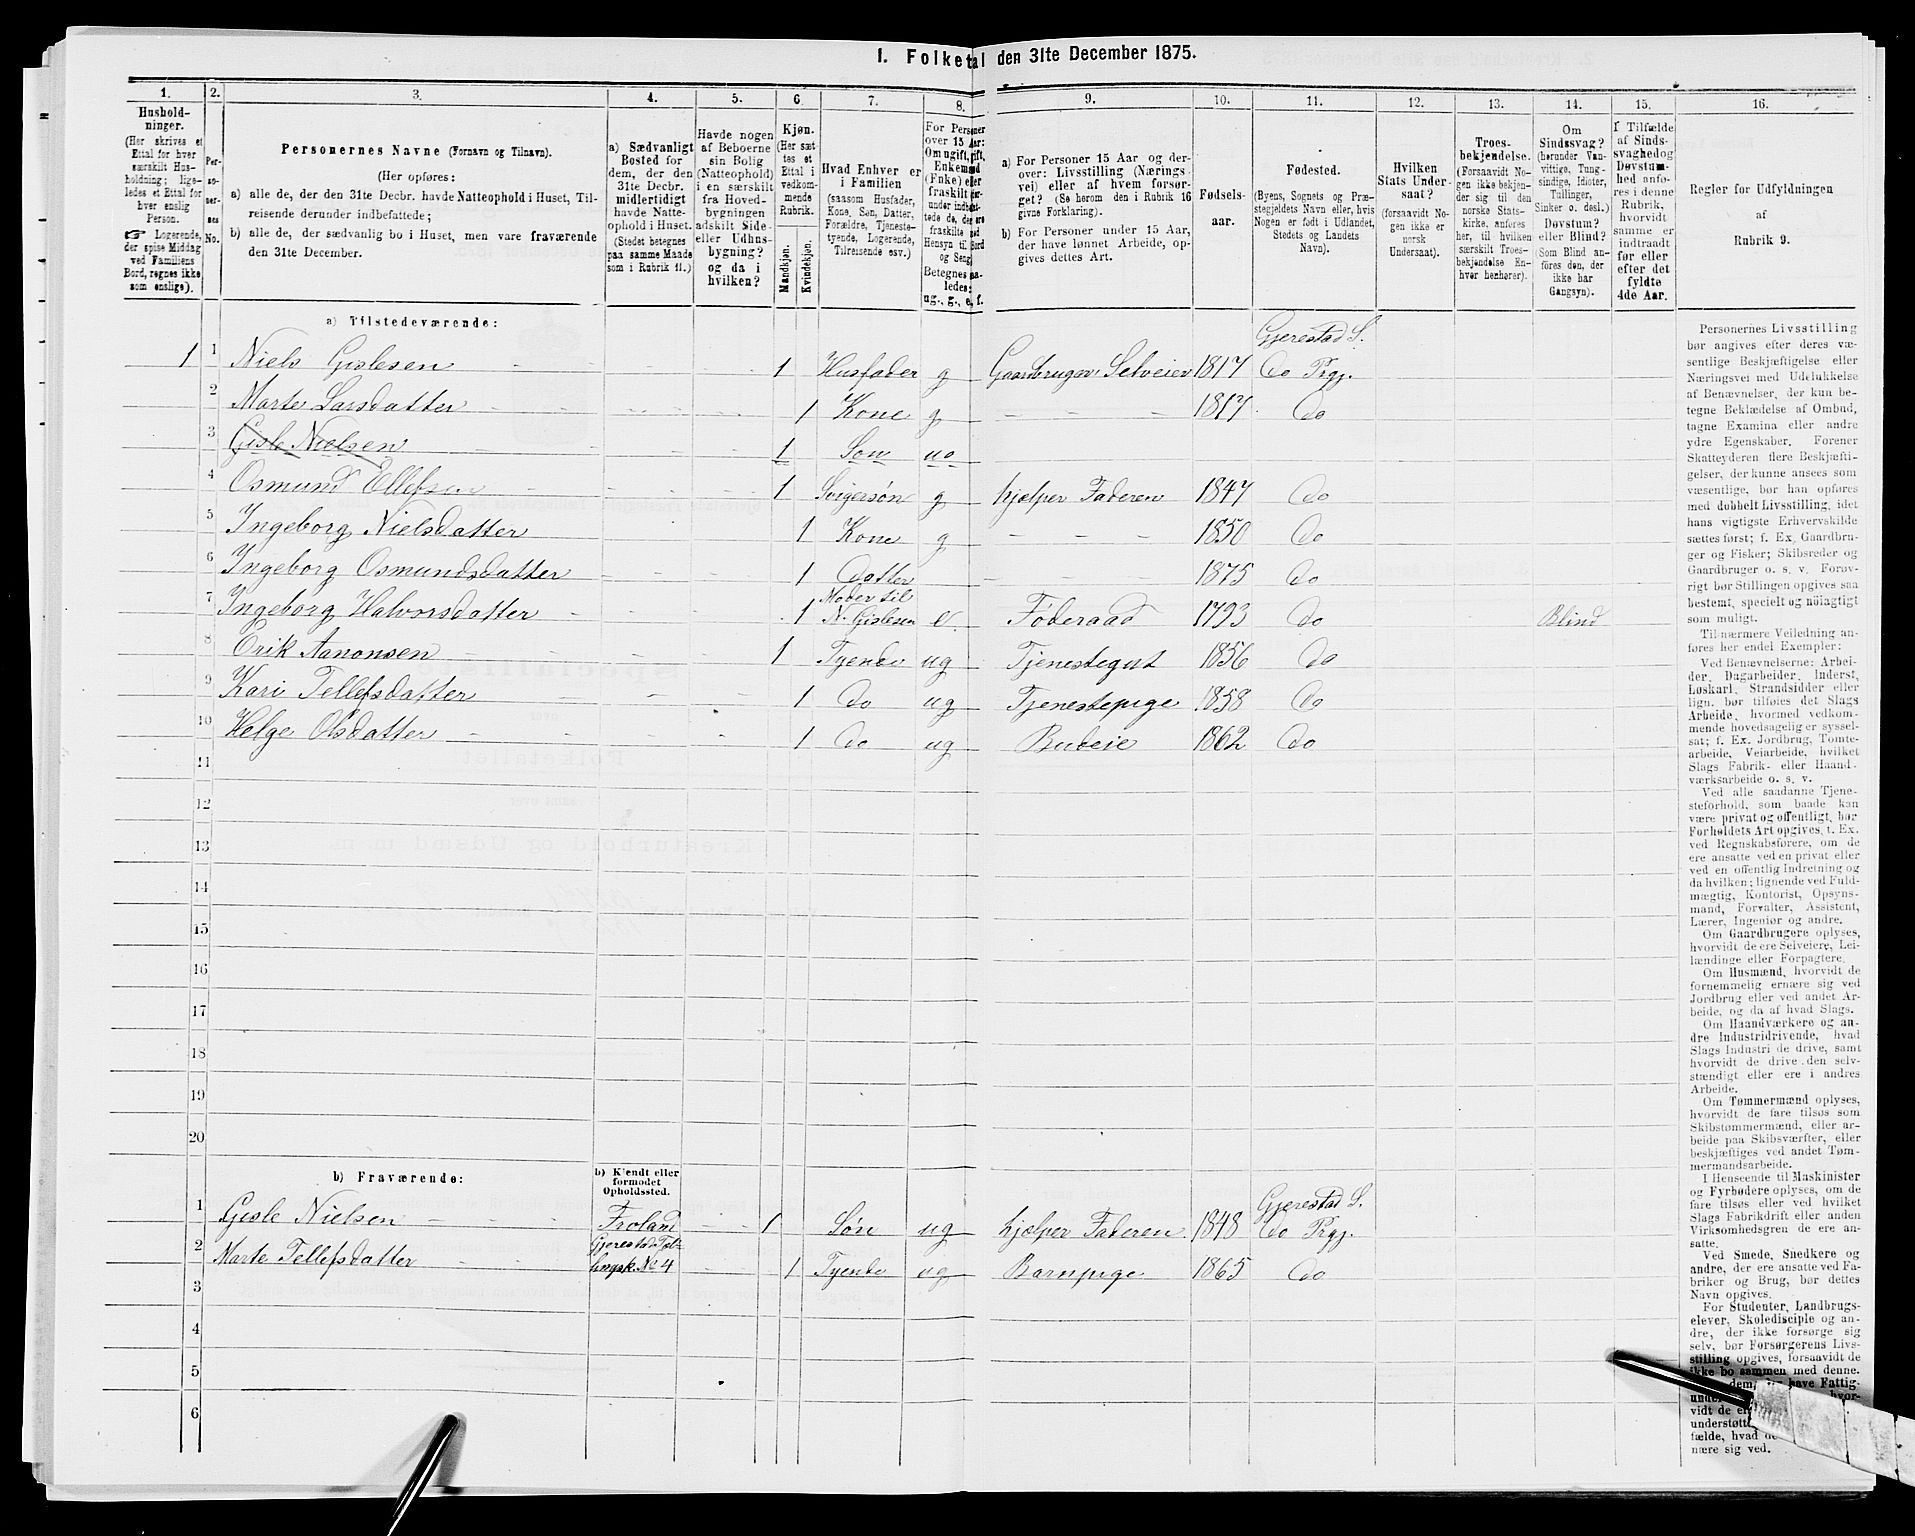 1. Folketal den 31te December 1875.
1. 2. 3. 4. 5. 6. 7. 8. 9. 10. 11. 12. 13. 14. 15. 16.
Hushold-
ninger.
(Her skrives et
Ettal for hver
særskilt Hus-
holdning; lige-
ledes et Ettal for
hver enslig
Person.
☞ Logerende,
der spise Middag
ved Familiens
Bord, regnes ikke
som enslige).
Per-
so-
ner-
nes
No.
Personernes Navne (Fornavn og Tilnavn).
(Her opføres:
a) alle de, der den 31te Decbr. havde Natteophold i Huset, Til-
reisende derunder indbefattede;
b) alle de, der sædvanlig bo i Huset, men vare fraværende
den 31te December.
a) Sædvanligt
Bosted for
dem, der den
31te Decbr.
midlertidigt
havde Natte-
ophold i Huset.
(Stedet betegnes
paa samme Maade
som i Rubrik 11.)
Havde nogen
af Beboerne
sin Bolig
(Natteophold)
i en særskilt
fra Hoved-
bygningen
adskilt Side-
eller Udhus-
bygning?
og da i
hvilken?
Kjøn.
(Her sæt-
tes et
Ettal i
vedkom-
mende
Rubrik.
Mandkjøn.
Kvindekjøn.
Hvad Enhver er
i Familien
(saasom Husfader,
Kone, Søn, Datter,
Forældre, Tjeneste-
tyende, Logerende,
Tilreisende osv.)
For Personer
over 15 Aar:
Om ugift, gift,
Enkemand
(Enke) eller
fraskilt
Hensyn til Bord
og Seng.
Betegnes saa-
ledes:
ug., g., e., f.
a) For Personer 15 Aar og der-
over: Livsstilling (Nærings-
vei) eller af hvem forsør-
get? (Se herom den i Rubrik 16
givne Forklaring).
b) For Personer under 15 Aar,
der have lønnet Arbeide, op-
gives dettes Art.
Fødsels-
aar.
Fødested.
(Byens, Sognets og Præ-
stegjeldets Navn eller, hvis
Nogen er født i Udlandet,
Stedets og Landets
Navn).
Hvilken
Stats Under-
saat?
(forsaavidt No-
gen ikke er
norsk
Undersaat).
Troes-
bekjendelse.
(Forsaavidt No-
gen ikke bekjen-
der sig til den
norske Stats-
kirke, anføres
her, til hvilken
særskilt Troes-
bekjendelse En-
hver henhører).
Om
Sindssvag?
(herunder Van-
vittige, Tung-
sindige, Idioter,
Tullinger,
Sinker o. desl.)
Døvstum?
eller Blind?
(Som Blind an-
føres den, der
ikke har
Gangsyn).
I Tilfælde
af Sinds-
svaghed og
Døvstum-
hed anfø-
res i denne
Rubrik,
hvorvidt
samme er
indtraadt
før eller
efter det
fyldte
4de Aar.
Regler for Udfyldningen
af
Rubrik 9.
a) Tilstedeværende:
Gjerestad S.
1 1 Niels Gislesen 1 Husfader g Gaardbruger Selveier 1817 do Prgj.
2 Marte Larsdatter 1 Kone g 1817 do
3 Gisle Nielsen 1 Søn ug
4 Osmund Ellefsen 1 Svigersøn g hjælper Faderen 1847 do
5 Ingeborg Nielsdatter 1 Kone g 1850 do
6 Ingeborg Osmundsdatter 1 Datter 1875 do
Moder til
7 Ingeborg Halvorsdatter 1 N. Gislesen e. Føderaad 1793 do Blind
8 Erik Aanonsen 1 Tyende ug Tjenestegut 1856 do
9 Kari Tellefsdatter 1 do ug Tjenestepige 1858 do
10 Helge Olsdatter 1 do ug Budeie 1862 do
11
12
13
14
15
16
17
18
19
20
b) Fraværende:
b) Kjendt eller
formodet
Opholdssted.
Gjerestad S.
1 Gisle Nielsen Froland 1 Søn ug hjælper Faderen 1848 do Prgj.
Gjerestad Tæl-
2 Marte Tellefsdatter lingsk. No 4 1 Tyende ug Barnpige 1865 do
3
4
5
6
Personernes Livsstilling
bør angives efter deres væ-
sentlige Beskjæftigelse eller
Næringsvei med Udelukkelse
af Benævnelser, der kun be-
tegne Beklædelse af Ombud,
tagne Examina eller andre
ydre Egenskaber. Forener
Skatteyderen flere Beskjæfti-
gelser, der kunne ansees som
væsentlige, bør han opføres
med dobbelt Livsstilling, idet
hans vigtigste Erhvervskilde
sættes først; f. Ex. Gaardbru-
ger og Fisker; Skibsreder og
Gaardbruger o. s. v. Forøv-
rigt bør Stillingen opgives saa
bestemt, specielt og nøiagtigt
som muligt.
Til nærmere Veiledning an-
føres her endel Exempler:
Ved Benævnelserne: Arbei-
der, Dagarbeider, Inderst,
Løskarl, Strandsidder eller
lign. bør tilføies det Slags
Arbeide, hvormed vedkom-
mende hovedsagelig er syssel-
sat; f. Ex. Jordbrug, Tomte-
arbeide, Veiarbeide, hvilket
Slags Fabrik- eller Haand-
værksarbeide o. s. v.
Ved alle saadanne Tjene-
steforhold, som baade kan
være privat og offentligt, bør
Forholdets Art opgives, t. Ex.
ved Regnskabsførere, om de
ere ansatte ved en privat eller
ved en offentlig Indretning og
da hvilken; lignende ved Fuld-
mægtig, Kontorist, Opsyns-
mand, Forvalter, Assistent,
Lærer, Ingeniør og andre.
Om Gaardbrugere oplyses,
hvorvidt de ere Selveiere, Lei-
lændinge eller Forpagtere.
Om Husmænd, hvorvidt de
fornemmelig ernære sig ved
Jordbrug eller ved andet Ar-
beide, og da af hvad Slags.
Om Haandværkere og an-
dre Industridrivende, hvad
Slags Industri de drive, samt
hvorvidt de drive den selv-
stændigt eller ere i andres
Arbeide.
Om Tømmermænd oplyses,
hvorvidt de fare tilsøs som
Skibstømmermænd, eller ar-
beide paa Skibsværfter, eller
beskjæftiges ved andet Tøm-
mermandsarbeide.
I Henseende til Maskinister
og Fyrbødere oplyses, om de
fare tilsøs eller ved hvilket
Slags Fabrikdrift eller anden
Virksomhedsgren de ere an-
satte.
Ved Smede, Snedkere og
andre, der ere ansatte ved Fa-
briker og Brug, bør dettes
Navn opgives.
For Studenter, Landbrugs-
elever, Skoledisciple og an-
dre, der ikke forsørge sig
selv, bør Forsørgerens Livs-
stilling opgives, forsaavidt de
ikke bo sammen med denne.
dem, have Fattig-
hvor-
vidt de
understøtt
fælde, hvad
nære sig ved.